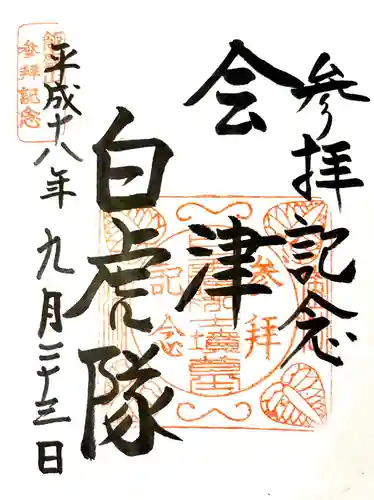 参拝記念
会津
白虎隊
平成十八年九月二十三日
飯盛山
参拝記念
参拝
記念